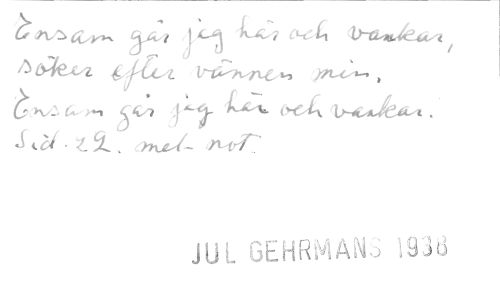 Ensam går jag här och vankar,
söker efter vännen min.
Ensam går jag här och vankar.
Sid. 22. mel- not.
JUL GEHRMANS 1938